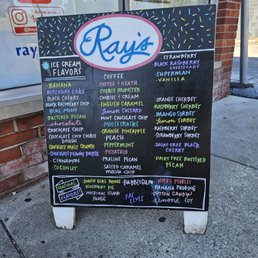 Ray's
ICE CREAM
FLAVORS
BANANA
BIRTHDAY CAKE
BLACK CHERRY
BLACK RASPBERRY CHIP
BLUE MOON
BUTTERED PECAN
chocolate
CHOCOLATE CHIP
CHOCOLATE CHIP COOKIE
DOUGH
CINNAMON
COCONUT
COFFEE
COFFEE HEATH
COOKIE MONSTER
COOKIES & CREAM
ENGLISH CARAMEL
Lemon Custard
MINT CHOCOLATE CHIP
MOOSETRACKS
ORANGE PINEAPPLE
PEACH
PEPPERMINT
PISTACHIO
PRALINE PECAN
SALTED CARAMEL
MOCHA CHIP
STRAWBERRY
BLACK RASPBERRY
CHEESECAKE
SUPERMAN
VANILLA
ORANGE SHERBET
RASPBERRY SHERBET
MANGO SORBET
Lemon SORBET
RASPBERRY SORBET
STRAWBERRY SORBET
DAIRY FREE BLACK
CHERRY
DAIRY FREE BUTTERED
PECAN
MACKINAC ISLAND
FUDGE
BUBBLEGUM
FAT
ELVIS
BANANA PUDDING
COTTON CANDY
almond joy